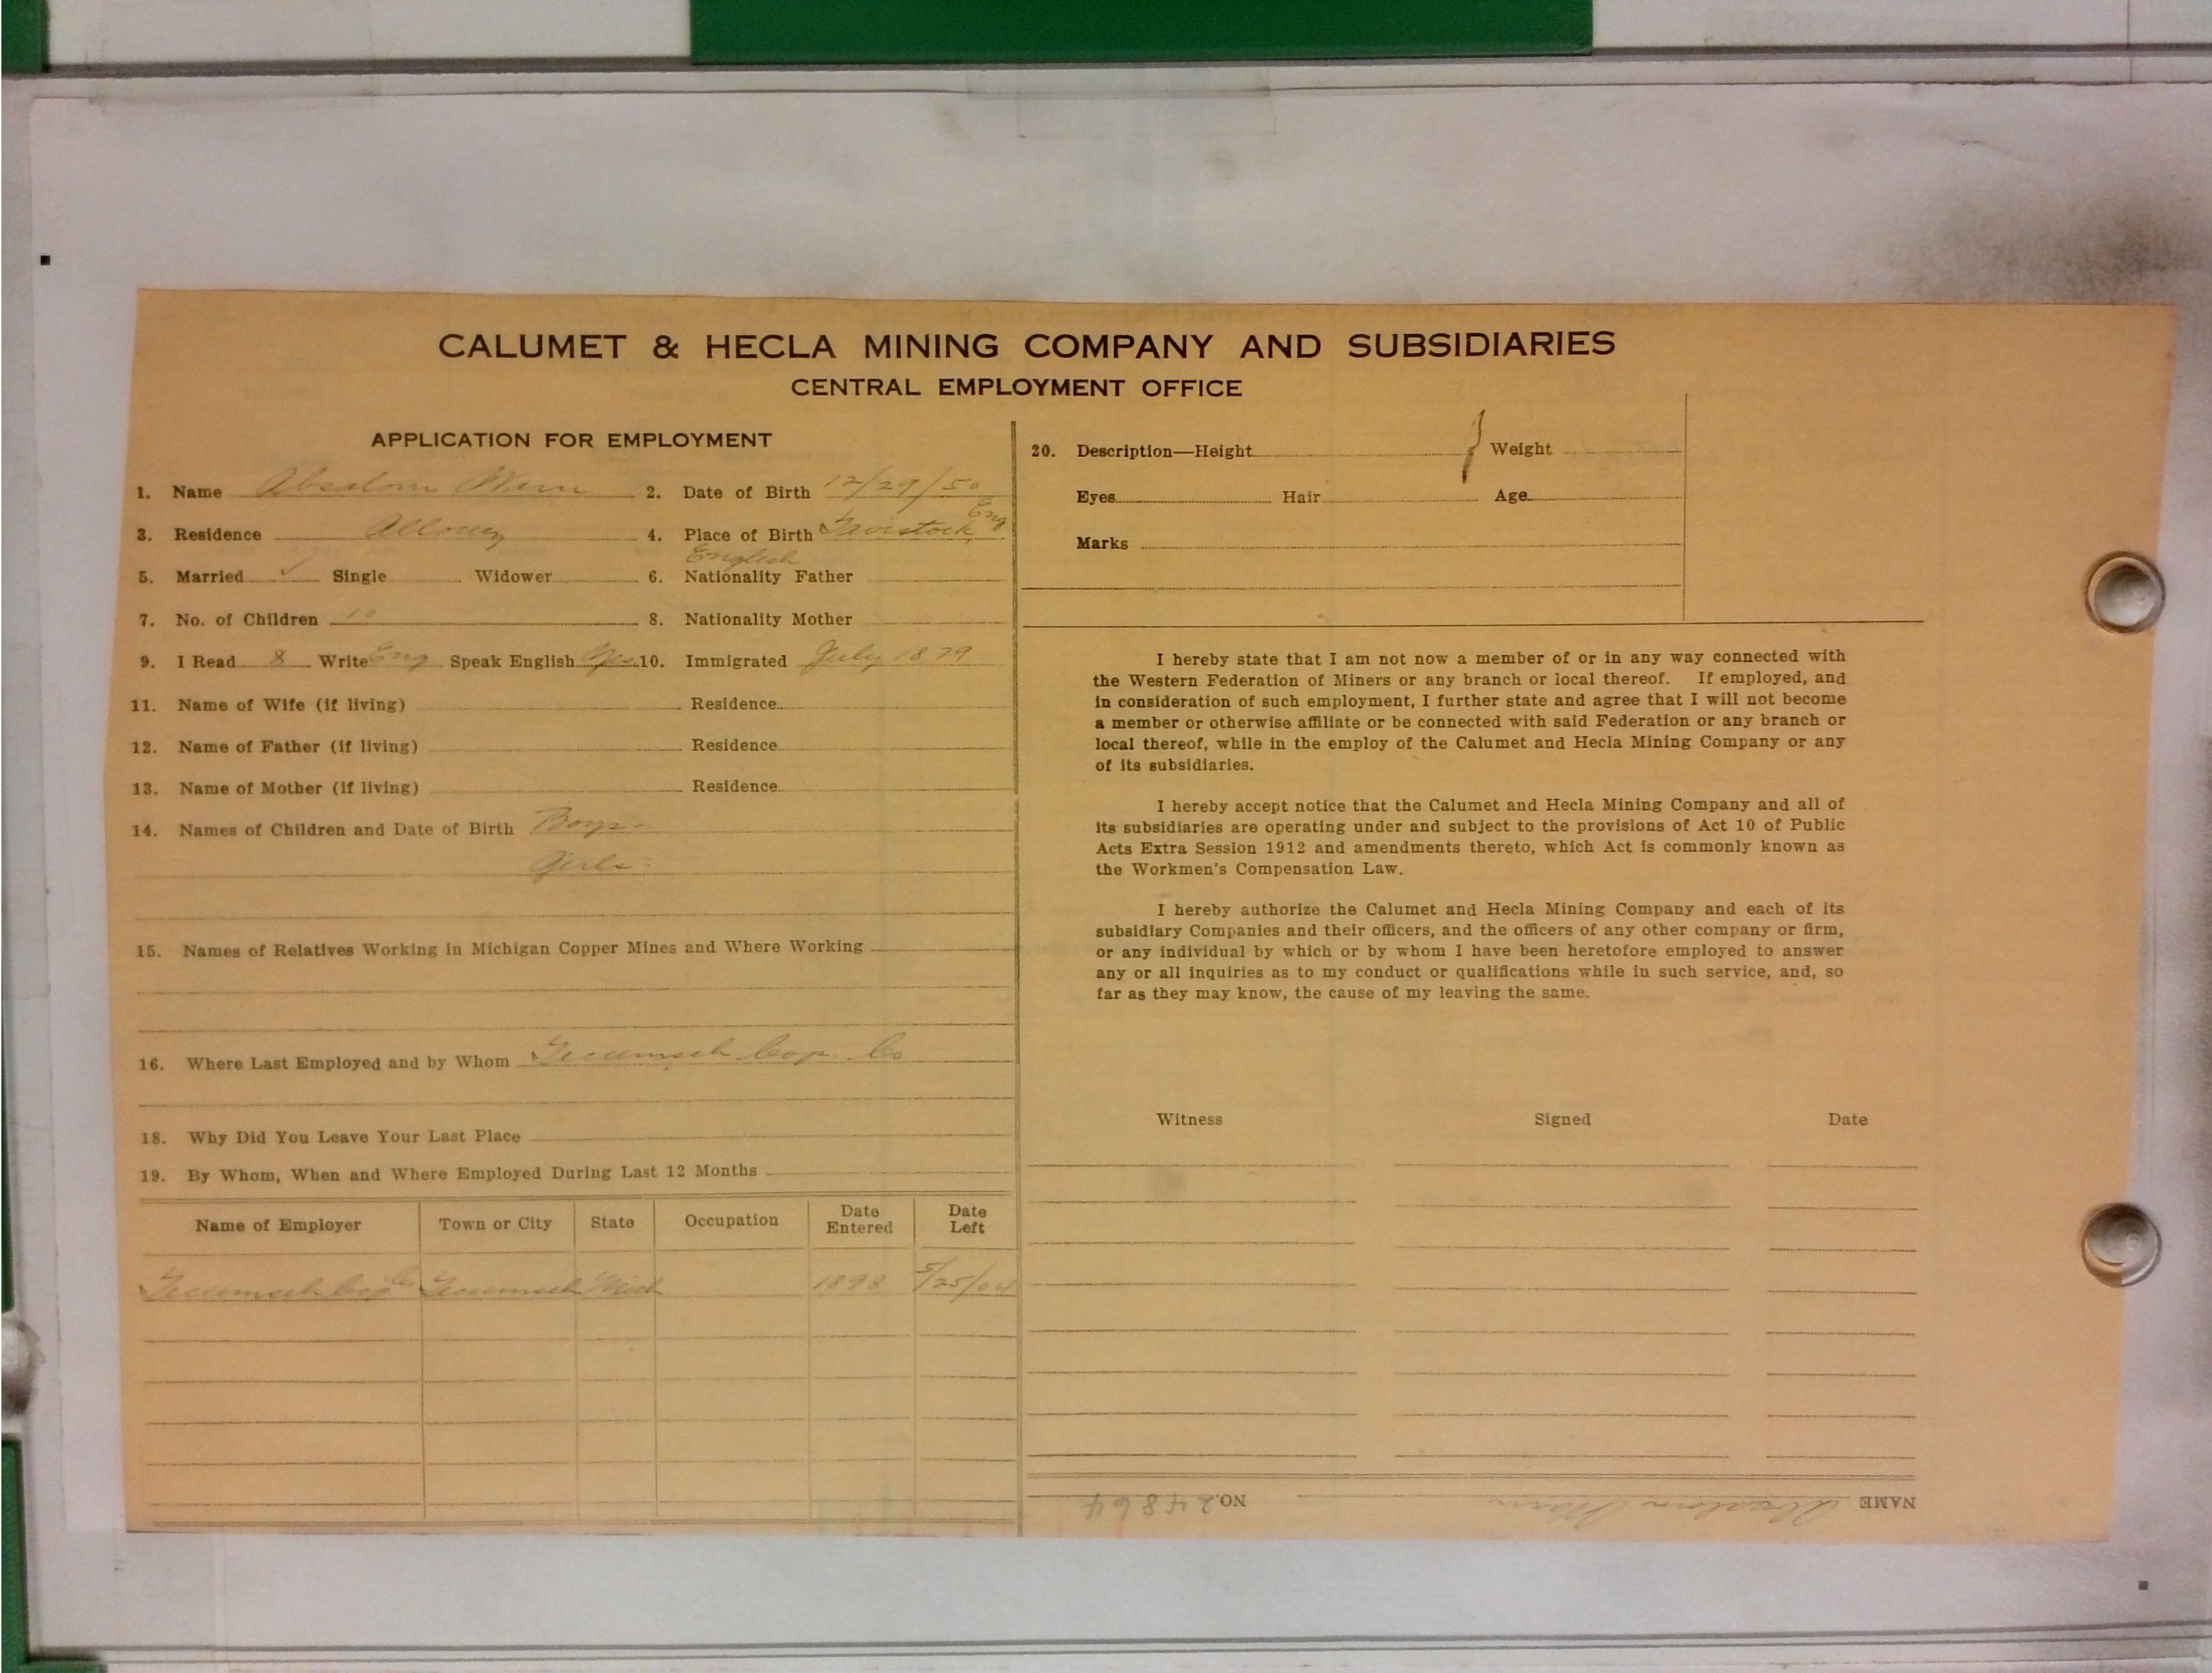 CALUMET & HECLA MINING COMPANY AND SUBSIDIARIES
CENTRAL EMPLOYMENT OFFICE
APPLICATION FOR EMPLOYMENT
1. Name Absalom Warn 2. Date of Birth 12/29/50
3. Residence Allouez 4. Place of Birth Tavistock, Eng
English
5. Married ✓ Single Widower 6. Nationality Father
7. No. of Children 10 8. Nationality Mother
9. I Read & Write Eng Speak English Yes 10. Immigrated July 1879
11. Name of Wife (if living) Residence
12. Name of Father (if living) Residence
13. Name of Mother (if living) Residence
14. Names of Children and Date of Birth Boys-
Girls-
15. Names of Relatives Working in Michigan Copper Mines and Where Working
16. Where Last Employed and by Whom Tecumseh Cop. Co
18. Why Did You Leave Your Last Place
19. By Whom, When and Where Employed During Last 12 Months
Name of Employer Town or City State Occupation Date Entered Date Left
Tecumseh Cop Co Tecumseh Mich 1898 5/25/04
20. Description—Height Weight
Eyes Hair Age
Marks
I hereby state that I am not now a member of or in any way connected with
the Western Federation of Miners or any branch or local thereof. If employed, and
in consideration of such employment, I further state and agree that I will not become
a member or otherwise affiliate or be connected with said Federation or any branch or
local thereof, while in the employ of the Calumet and Hecla Mining Company or any
of its subsidiaries.
I hereby accept notice that the Calumet and Hecla Mining Company and all of
its subsidiaries are operating under and subject to the provisions of Act 10 of Public
Acts Extra Session 1912 and amendments thereto, which Act is commonly known as
the Workmen's Compensation Law.
I hereby authorize the Calumet and Hecla Mining Company and each of its
subsidiary Companies and their officers, and the officers of any other company or firm,
or any individual by which or by whom I have been heretofore employed to answer
any or all inquiries as to my conduct or qualifications while in such service, and, so
far as they may know, the cause of my leaving the same.
Witness Signed Date
NAME Absalom Warn NO. 24864